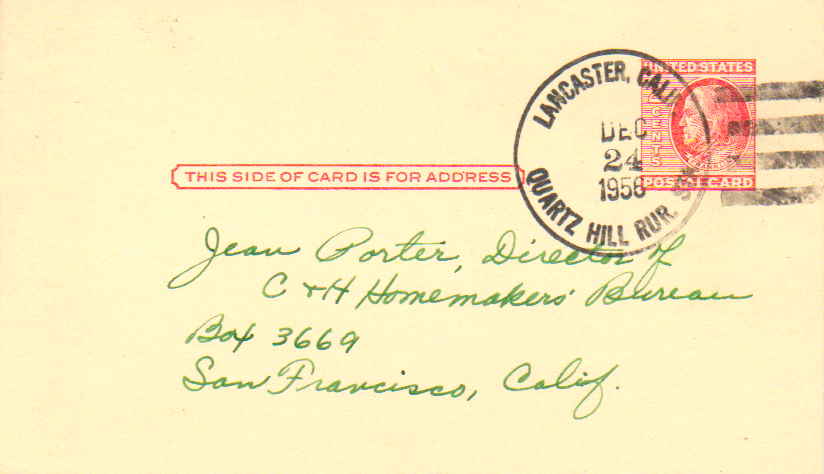 LANCASTER, CALIF.
DEC
24
1956
QUARTZ HILL RUR.
UNITED STATES
2 CENTS
FRANKLIN
POSTAL CARD
THIS SIDE OF CARD IS FOR ADDRESS
Jean Porter, Director of
C & H Homemakers' Bureau
Box 3669
San Francisco, Calif.